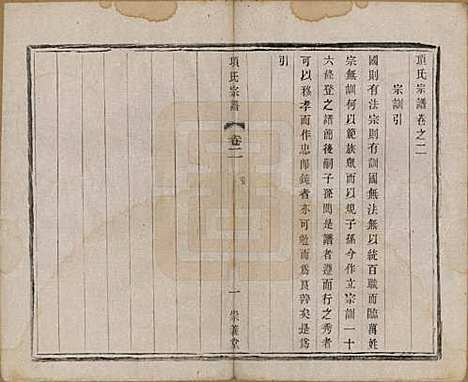 項氏宗譜卷之二
宗訓引
國則有法宗則有訓國無法無以統百職而臨萬姓
宗無訓何以範族眾而以規子孫今作立宗訓一十
六條登之諸節後嗣子孫閱是譜者遵而行之秀者
可以移孝而作忠即鈍者亦可勉而為良善矣是為
引
項氏宗譜
卷二
一
崇義堂